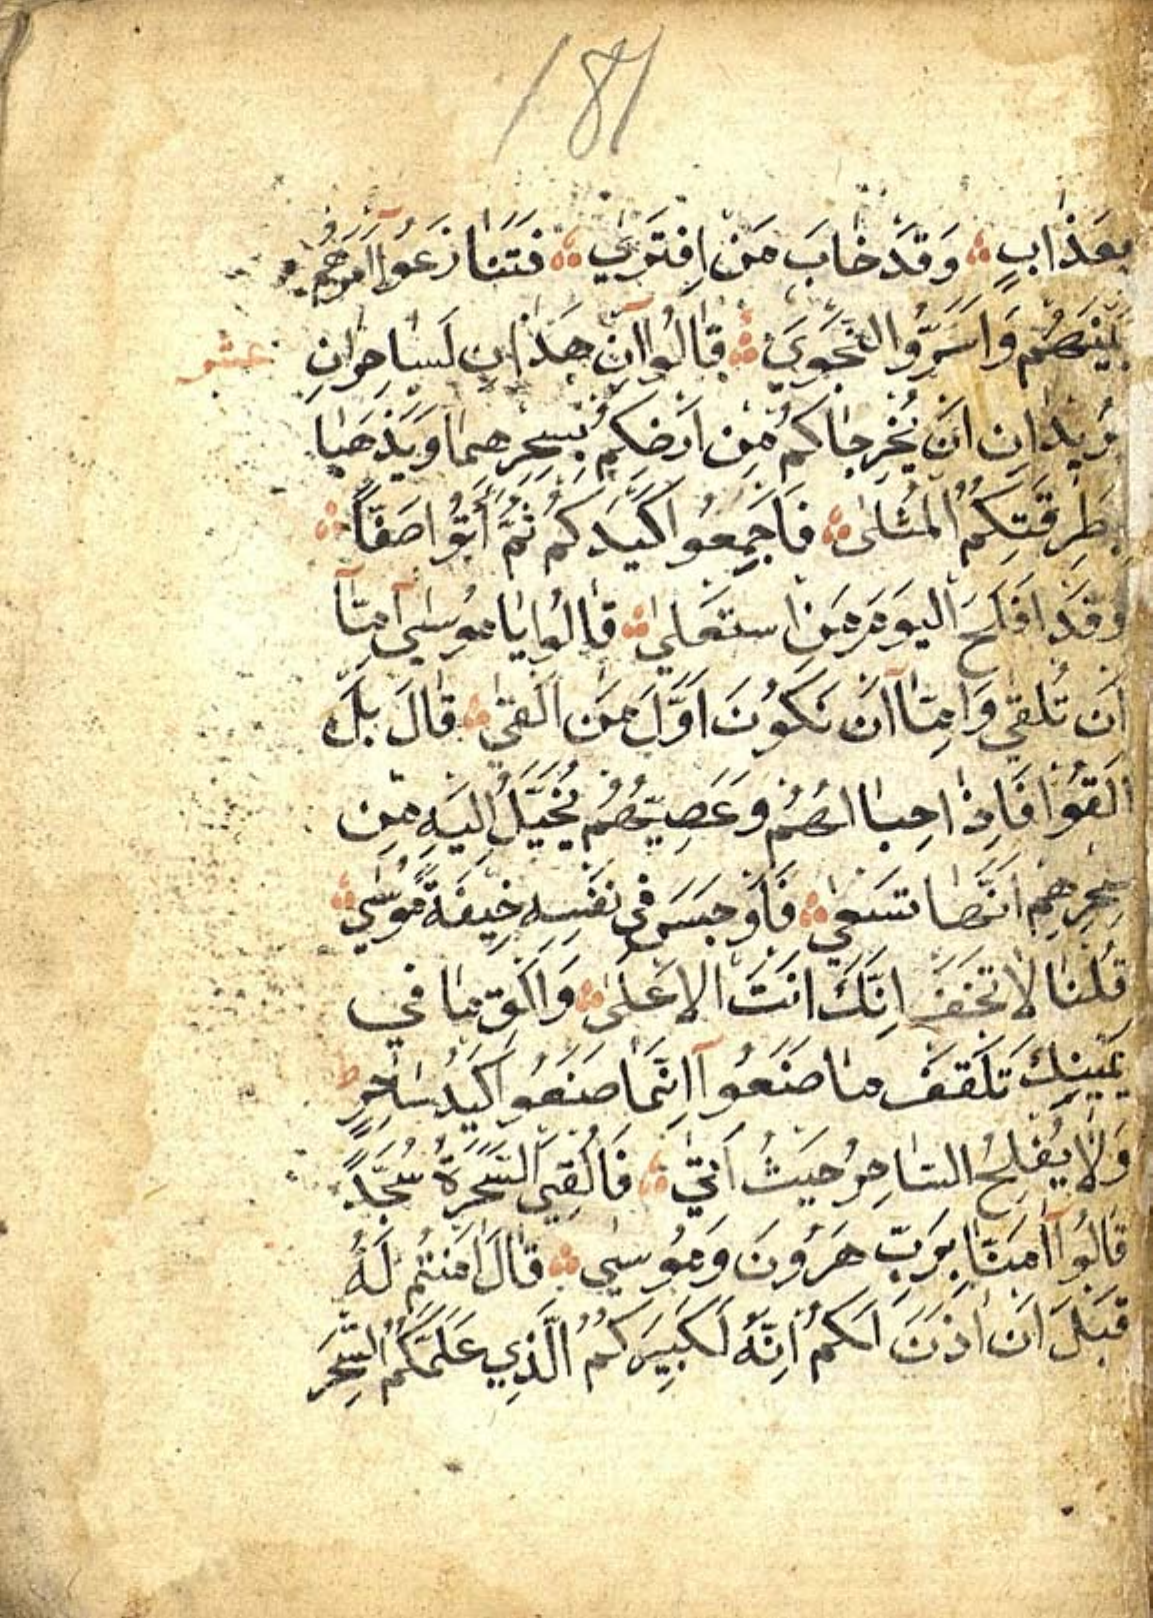 181
بِعَذَابٍ وَقَدْ خَابَ مَنْ اِفْتَرٰي فَتَنَازَعُوآ اَمْرَهُمْ
بَيْنَهُمْ وَاَسَرُّوا النَّجْوَيٰ قَالُوا اِنْ هَذَانِ لَسَاحِرَانِ
عشر
يُرِيدَانِ اَنْ يُخْرِجَاكُمْ مِنْ اَرْضِكُمْ بِسِحْرِهِمَا وَيَذْهَبَا
بِطَرِقَتِكُمُ الْمُثْلٰى فَاَجْمِعُوا كَيْدَكُمْ ثُمَّ أْتُوا صَفّاً
وَقَدْ اَفْلَحَ الْيَوْمَ مَنِ اسْتَعْلٰي قَالُوا يَا مُوسٰىٓ اِمَّآ
اَنْ تُلْقِيَ وَاِمَّآ اَنْ نَكُونَ اَوَّلَ مَنْ اَلْقٰي قَالَ بَلْ
اَلْقُوا فَاِذَا حِبَالُهُمْ وَعَصِيُّهُمْ يُخَيَّلُ اِلَيْهِ مِنْ
سِحْرِهِمْ اَنَّهَا تَسْعٰي فَاَوْجَسَ فِي نَفْسِهِ خِيفَةً مُوسٰي
قُلْنَا لَا تَخَفْ اِنَّكَ اَنْتَ الْاَعْلٰى وَاَلْقِ مَا فِي
يَمِينِكَ تَلْقَفْ مَا صَنَعُوآ اِنَّمَا صَنَعُوا كَيْدُ سَاحِرٍ ط
وَلَا يُفْلِحُ السَّاحِرُ حَيْثُ اَتٰي فَاُلْقِيَ السَّحَرَةُ سُجَّدًا
قَالُوآ اٰمَنَّا بِرَبِّ هَرُونَ وَمُوسٰي قَالَ اٰمَنْتُمْ لَهُ
قَبْلَ اَنْ اٰذَنَ لَكُمْ اِنَّهُ لَكَبِيرُكُمُ الَّذِي عَلَّمَكُمُ السِّحْرَ